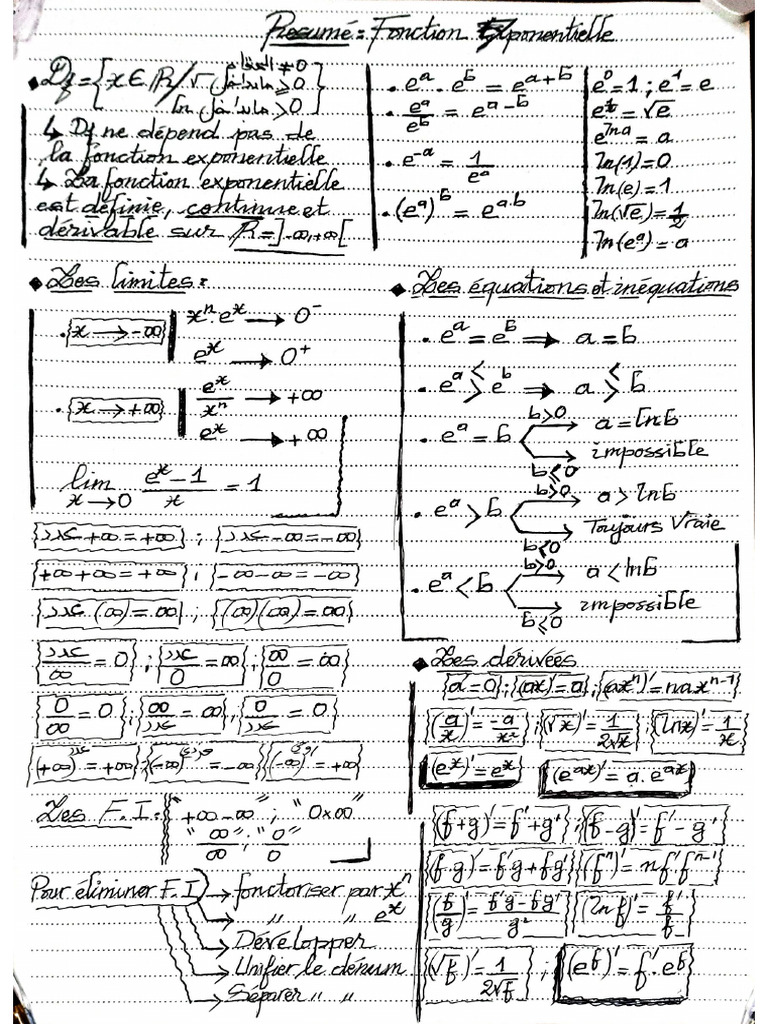 Resumé : Fonction Exponentielle
• Df = { x ∈ ℝ / المقام ≠ 0
√ مابداخل ≥ 0
ln مابداخل > 0 }
↳ Df ne dépend pas de
la fonction exponentielle
↳ La fonction exponentielle
est définie, continue et
dérivable sur ℝ = ]-∞,+∞[
• e^a . e^b = e^(a+b)
• e^a / e^b = e^(a-b)
• e^(-a) = 1 / e^a
• (e^a)^b = e^(a.b)
e^0 = 1 ; e^1 = e
e^(1/2) = √e
e^(ln a) = a
ln(1) = 0
ln(e) = 1
ln(√e) = 1/2
ln(e^a) = a
♦ Les limites :
• x → -∞ | x^n . e^x → 0^-
e^x → 0^+
• x → +∞ | e^x / x^n → +∞
e^x → +∞
lim x→0 (e^x - 1) / x = 1
عدد + ∞ = +∞ ; عدد - ∞ = -∞
+∞ + ∞ = +∞ ; -∞ - ∞ = -∞
عدد (∞) = ∞ ; (∞)(∞) = ∞
عدد / ∞ = 0 ; عدد / 0 = ∞ ; ∞ / 0 = ∞
0 / ∞ = 0 ; ∞ / عدد = ∞ ; 0 / عدد = 0
(+∞)^عدد = +∞ ; (-∞)^فردي = -∞ ; (-∞)^زوجي = +∞
Les F.I : "+∞ - ∞" ; "0×∞"
"∞ / ∞" ; "0 / 0"
Pour éliminer F.I → fonctoriser par x^n
→ " " e^x
→ Développer
→ Unifier le dénum
→ Séparer " "
♦ Les équations et inéquations
• e^a = e^b ⟹ a = b
• e^a ≶ e^b ⟹ a ≶ b
• e^a = b
b>0 → a = ln b
b≤0 → impossible
• e^a > b
b>0 → a > ln b
b≤0 → Toujours Vraie
• e^a < b
b>0 → a < ln b
b≤0 → impossible
♦ Les dérivées
a' = 0 ; (ax)' = a ; (ax^n)' = nax^(n-1)
(a/x)' = -a/x² ; (√x)' = 1/(2√x) ; (ln x)' = 1/x
(e^x)' = e^x ; (e^(ax))' = a . e^(ax)
(f+g)' = f'+g' ; (f-g)' = f' - g'
(f.g)' = f'g + fg' ; (f^n)' = n f' f^(n-1)
(f/g)' = (f'g - fg')/g² ; (ln f)' = f'/f
(√f)' = 1/(2√f) ; (e^f)' = f' . e^f